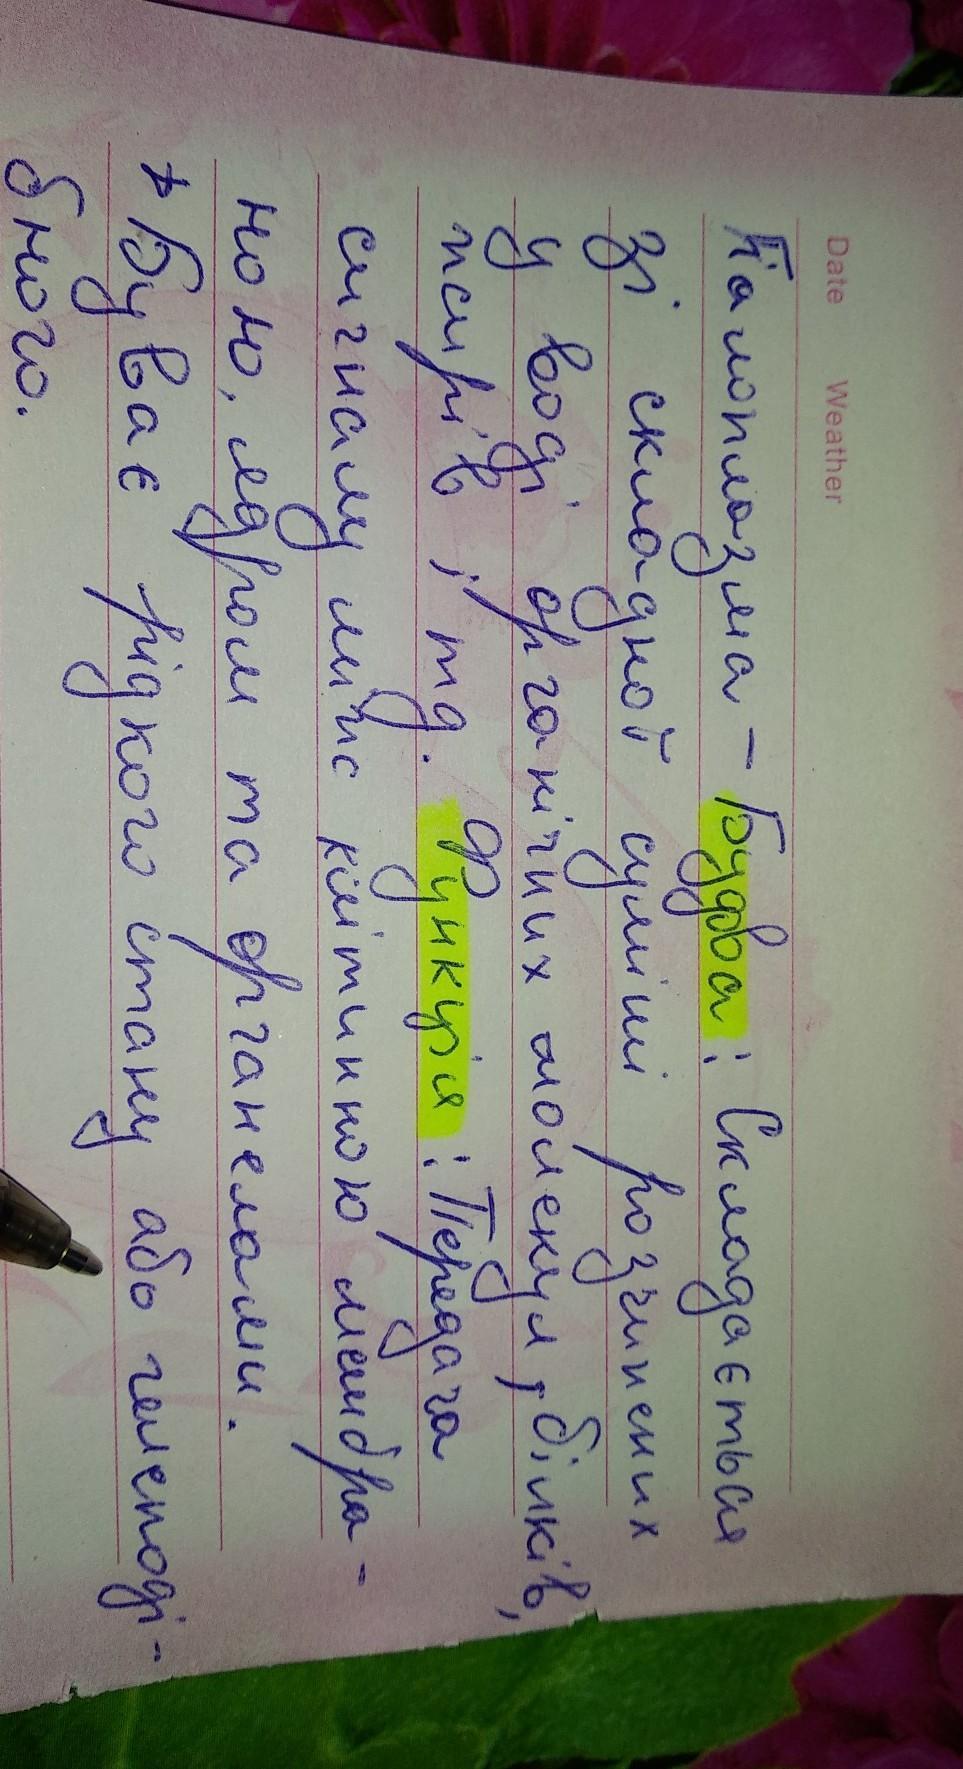 Date Weather
Гіалоплазма – Будова: Складається
зі складної суміші розчинених
у воді органічних молекул, білків,
жирів і тд. Функція: Передача
сигналу між клітинною мембра-
ною, ядром та органелами.
* Буває рідкого стану або гелеподі-
бного.